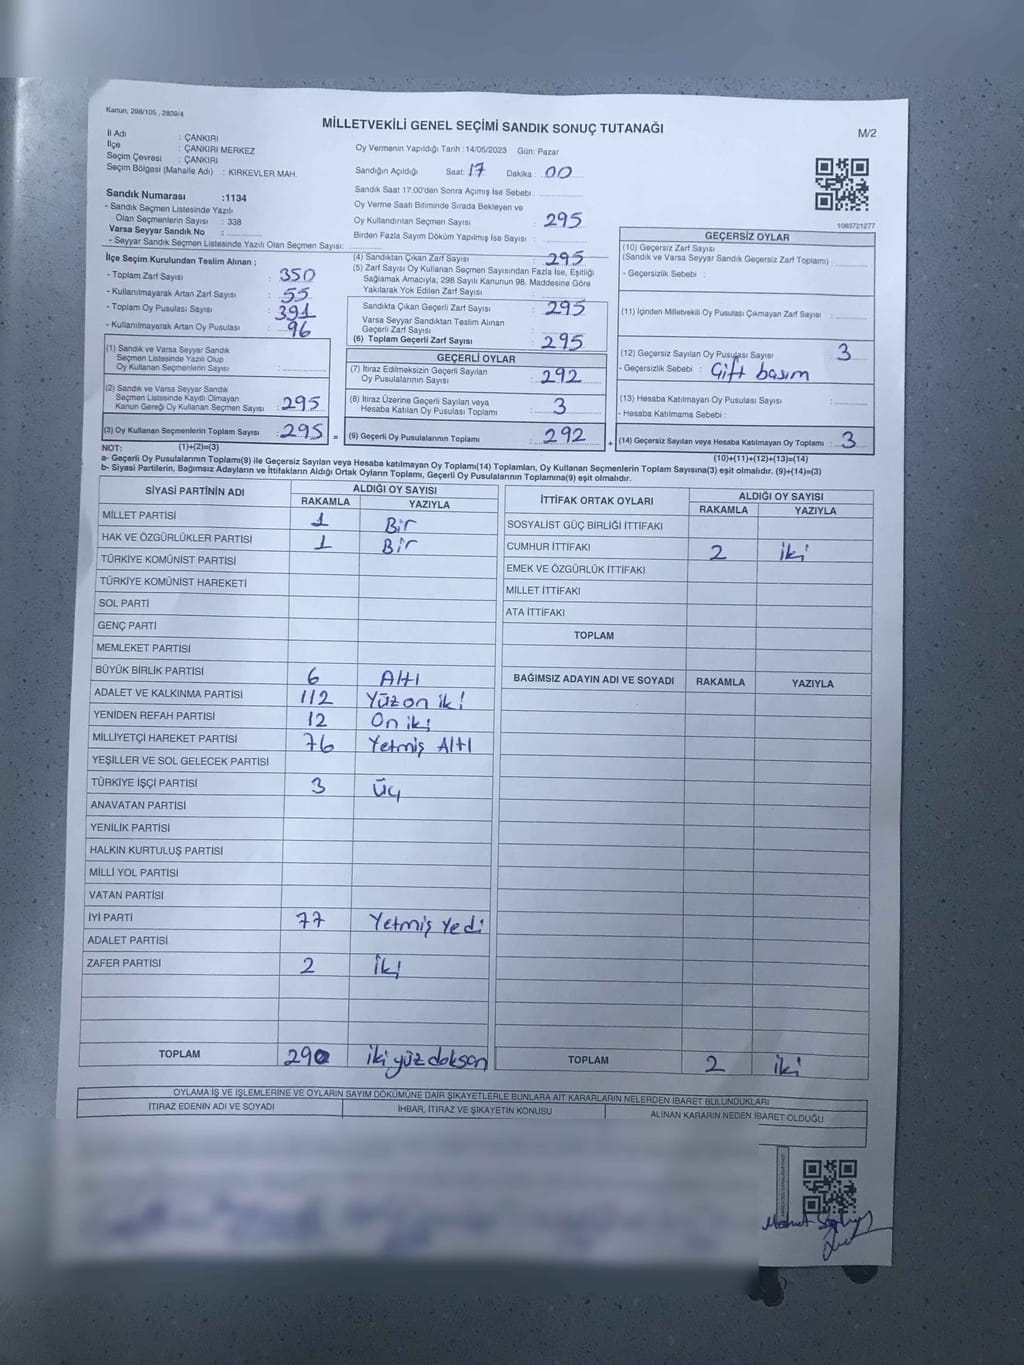 Kanun, 298/105 , 2839/4
MİLLETVEKİLİ GENEL SEÇİMİ SANDIK SONUÇ TUTANAĞI
M/2
İl Adı : ÇANKIRI
İlçe : ÇANKIRI MERKEZ
Seçim Çevresi : ÇANKIRI
Seçim Bölgesi (Mahalle Adı) : KIRKEVLER MAH.
Sandık Numarası :1134
- Sandık Seçmen Listesinde Yazılı
Olan Seçmenlerin Sayısı : 338
Varsa Seyyar Sandık No :
- Seyyar Sandık Seçmen Listesinde Yazılı Olan Seçmen Sayısı:
Oy Vermenin Yapıldığı Tarih :14/05/2023 Gün: Pazar
Sandığın Açıldığı Saat: 17 Dakika : 00
Sandık Saat 17.00'den Sonra Açımış İse Sebebi :
Oy Verme Saati Bitiminde Sırada Bekleyen ve
Oy Kullandırılan Seçmen Sayısı : 295
Birden Fazla Sayım Döküm Yapılmış İse Sayısı :
1083721277
İlçe Seçim Kurulundan Teslim Alınan ;
- Toplam Zarf Sayısı : 350
- Kullanılmayarak Artan Zarf Sayısı : 55
- Toplam Oy Pusulası : 391
- Kullanılmayarak Artan Oy Pusulası : 96
(1) Sandık ve Varsa Seyyar Sandık
Seçmen Listesinde Yazılı Olup
Oy Kullanan Seçmenlerin Sayısı :
(2) Sandık ve Varsa Seyyar Sandık
Seçmen Listesinde Kayıtlı Olmayan
Kanun Gereği Oy Kullanan Seçmen Sayısı : 295
(3) Oy Kullanan Seçmenlerin Toplam Sayısı : 295 =
(4) Sandıktan Çıkan Zarf Sayısı : 295
(5) Zarf Sayısı Oy Kullanan Seçmen Sayısından Fazla İse, Eşitliği
Sağlamak Amacıyla, 298 Sayılı Kanunun 98. Maddesine Göre
Yakılarak Yok Edilen Zarf Sayısı :
Sandıkta Çıkan Geçerli Zarf Sayısı : 295
Varsa Seyyar Sandıktan Teslim Alınan
Geçerli Zarf Sayısı :
(6) Toplam Geçerli Zarf Sayısı : 295
GEÇERLİ OYLAR
(7) İtiraz Edilmeksizin Geçerli Sayılan
Oy Pusulalarının Sayısı : 292
(8) İtiraz Üzerine Geçerli Sayılan veya
Hesaba Katılan Oy Pusulası Toplamı : 3
(9) Geçerli Oy Pusulalarının Toplamı : 292 +
GEÇERSİZ OYLAR
(10) Geçersiz Zarf Sayısı
(Sandık ve Varsa Seyyar Sandık Geçersiz Zarf Toplamı) :
- Geçersizlik Sebebi :
(11) İçinden Milletvekili Oy Pusulası Çıkmayan Zarf Sayısı :
(12) Geçersiz Sayılan Oy Pusulası Sayısı : 3
- Geçersizlik Sebebi : Çift basım
(13) Hesaba Katılmayan Oy Pusulası Sayısı :
- Hesaba Katılmama Sebebi :
(14) Geçersiz Sayılan veya Hesaba Katılmayan Oy Toplamı : 3
NOT: (1)+(2)=(3)
(10)+(11)+(12)+(13)=(14)
a- Geçerli Oy Pusulalarının Toplamı(9) ile Geçersiz Sayılan veya Hesaba katılmayan Oy Toplamı(14) Toplamları, Oy Kullanan Seçmenlerin Toplam Sayısına(3) eşit olmalıdır. (9)+(14)=(3)
b- Siyasi Partilerin, Bağımsız Adayların ve İttifakların Aldığı Ortak Oyların Toplamı, Geçerli Oy Pusulalarının Toplamına(9) eşit olmalıdır.
SİYASİ PARTİNİN ADI ALDIĞI OY SAYISI
RAKAMLA YAZIYLA
MİLLET PARTİSİ 1 Bir
HAK VE ÖZGÜRLÜKLER PARTİSİ 1 Bir
TÜRKİYE KOMÜNİST PARTİSİ
TÜRKİYE KOMÜNİST HAREKETİ
SOL PARTİ
GENÇ PARTİ
MEMLEKET PARTİSİ
BÜYÜK BİRLİK PARTİSİ 6 Altı
ADALET VE KALKINMA PARTİSİ 112 Yüz on iki
YENİDEN REFAH PARTİSİ 12 On iki
MİLLİYETÇİ HAREKET PARTİSİ 76 Yetmiş Altı
YEŞİLLER VE SOL GELECEK PARTİSİ
TÜRKİYE İŞÇİ PARTİSİ 3 Üç
ANAVATAN PARTİSİ
YENİLİK PARTİSİ
HALKIN KURTULUŞ PARTİSİ
MİLLİ YOL PARTİSİ
VATAN PARTİSİ
İYİ PARTİ 77 Yetmiş Yedi
ADALET PARTİSİ
ZAFER PARTİSİ 2 İki
TOPLAM 290 iki yüz doksan
İTTİFAK ORTAK OYLARI ALDIĞI OY SAYISI
RAKAMLA YAZIYLA
SOSYALİST GÜÇ BİRLİĞİ İTTİFAKI
CUMHUR İTTİFAKI 2 iki
EMEK VE ÖZGÜRLÜK İTTİFAKI
MİLLET İTTİFAKI
ATA İTTİFAKI
TOPLAM
BAĞIMSIZ ADAYIN ADI VE SOYADI RAKAMLA YAZIYLA
TOPLAM 2 iki
OYLAMA İŞ VE İŞLEMLERİNE VE OYLARIN SAYIM DÖKÜMÜNE DAİR ŞİKAYETLERLE BUNLARA AİT KARARLARIN NELERDEN İBARET BULUNDUKLARI
İTİRAZ EDENİN ADI VE SOYADI İHBAR, İTİRAZ VE ŞİKAYETİN KONUSU ALINAN KARARIN NEDEN İBARET OLDUĞU